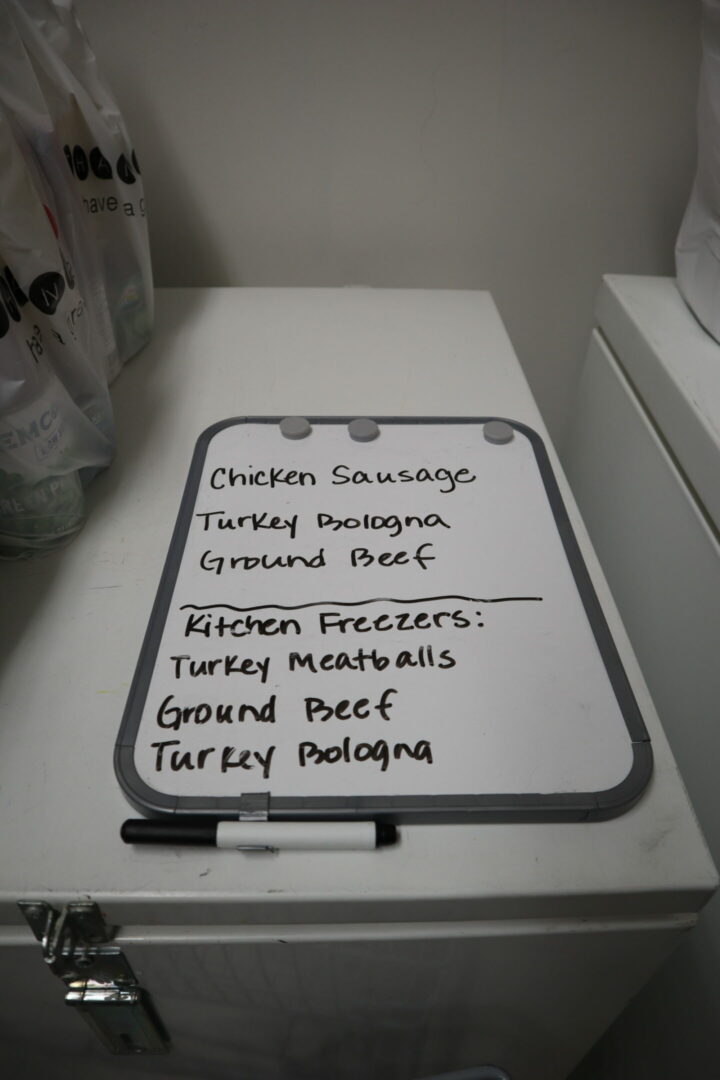 have a g
Chicken Sausage
Turkey Bologna
Ground Beef
Kitchen Freezers:
Turkey Meatballs
Ground Beef
Turkey Bologna